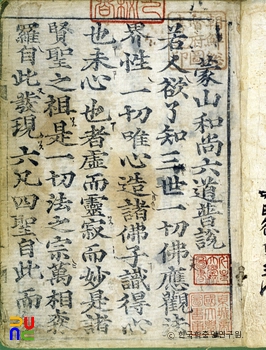 蒙山和尚六道普說
若人欲了知三世一切佛應觀法
界性一切唯心造諸佛子識得心
也未心也者虛而靈寂而妙是諸
賢聖之祖是一切法之宗萬相森
羅自此發現六凡四聖自此而
©한국학중앙연구원